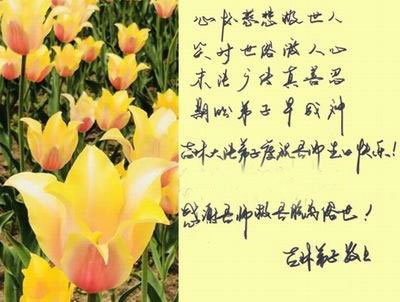 心怀慈悲救世人
对世俗人心
末法广传真善忍
期盼弟子早成神
吉林大法弟子庆祝吾师生日快乐！
感谢吾师救吾脱离俗世！
吉林弟子敬上